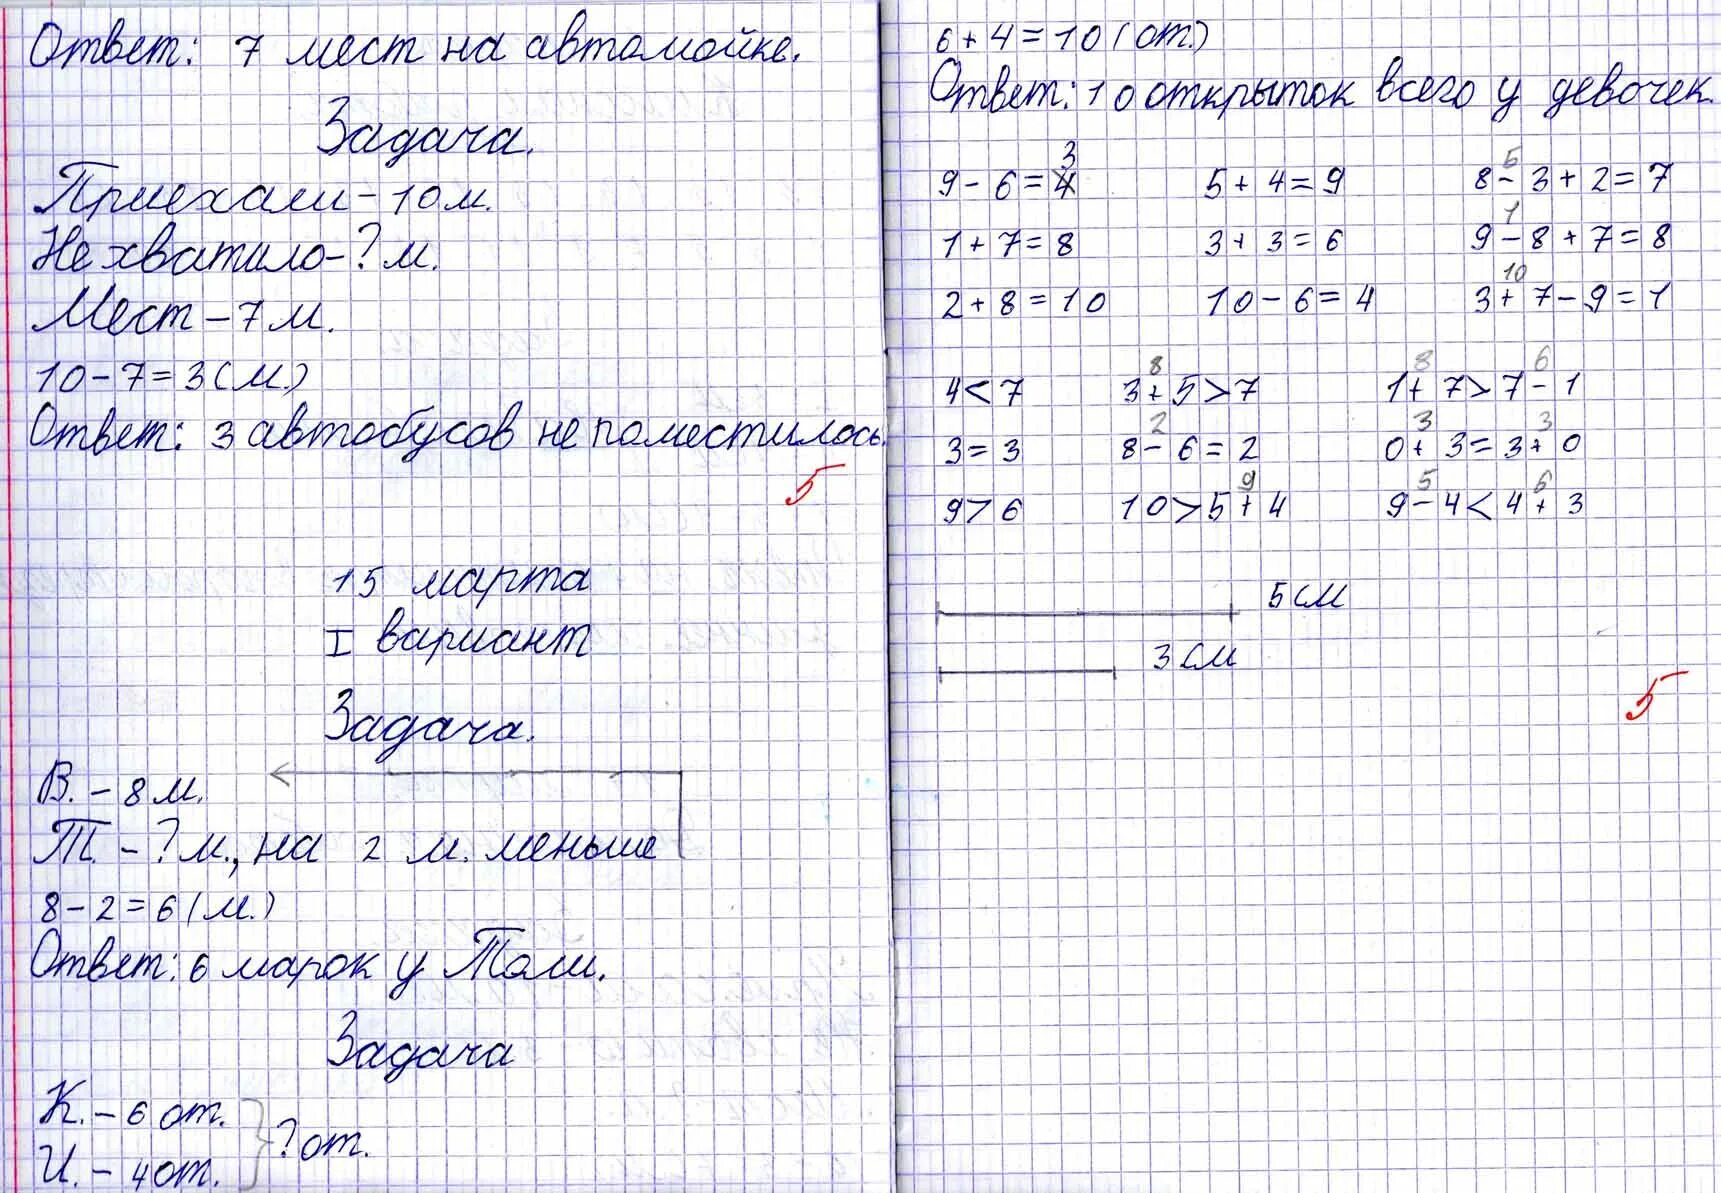 Ответ: 7 мест на автомойке.
Задача.
Приехали - 10 м.
Не хватило - ? м.
Мест - 7 м.
10 - 7 = 3 (м.)
Ответ: 3 автобусов не поместилось.
5
15 марта
I вариант
Задача.
В. - 8 м.
Т. - ? м., на 2 м. меньше
8 - 2 = 6 (м.)
Ответ: 6 марок у Толи.
Задача
К. - 6 от.
И. - 4 от.
? от.
6 + 4 = 10 (от.)
Ответ: 10 открыток всего у девочек.
3 5
9 - 6 = 4 5 + 4 = 9 8 - 3 + 2 = 7
1
1 + 7 = 8 3 + 3 = 6 9 - 8 + 7 = 8
10
2 + 8 = 10 10 - 6 = 4 3 + 7 - 9 = 1
8 8 6
4 < 7 3 + 5 > 7 1 + 7 > 7 - 1
2 3 3
3 = 3 8 - 6 = 2 0 + 3 = 3 + 0
9 5 6
9 > 6 10 > 5 + 4 9 - 4 < 4 + 3
5 см
3 см
5